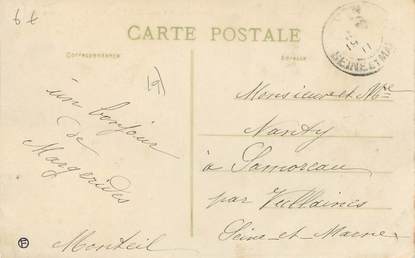 6f
CARTE POSTALE
Correspondance
Adresse
19
SEINE ET MA
un bonjour
de
Margerides
Monteil
Monsieur et Mme
Nanty
à Samoreau
par Vullaines
Seine-et-Marne